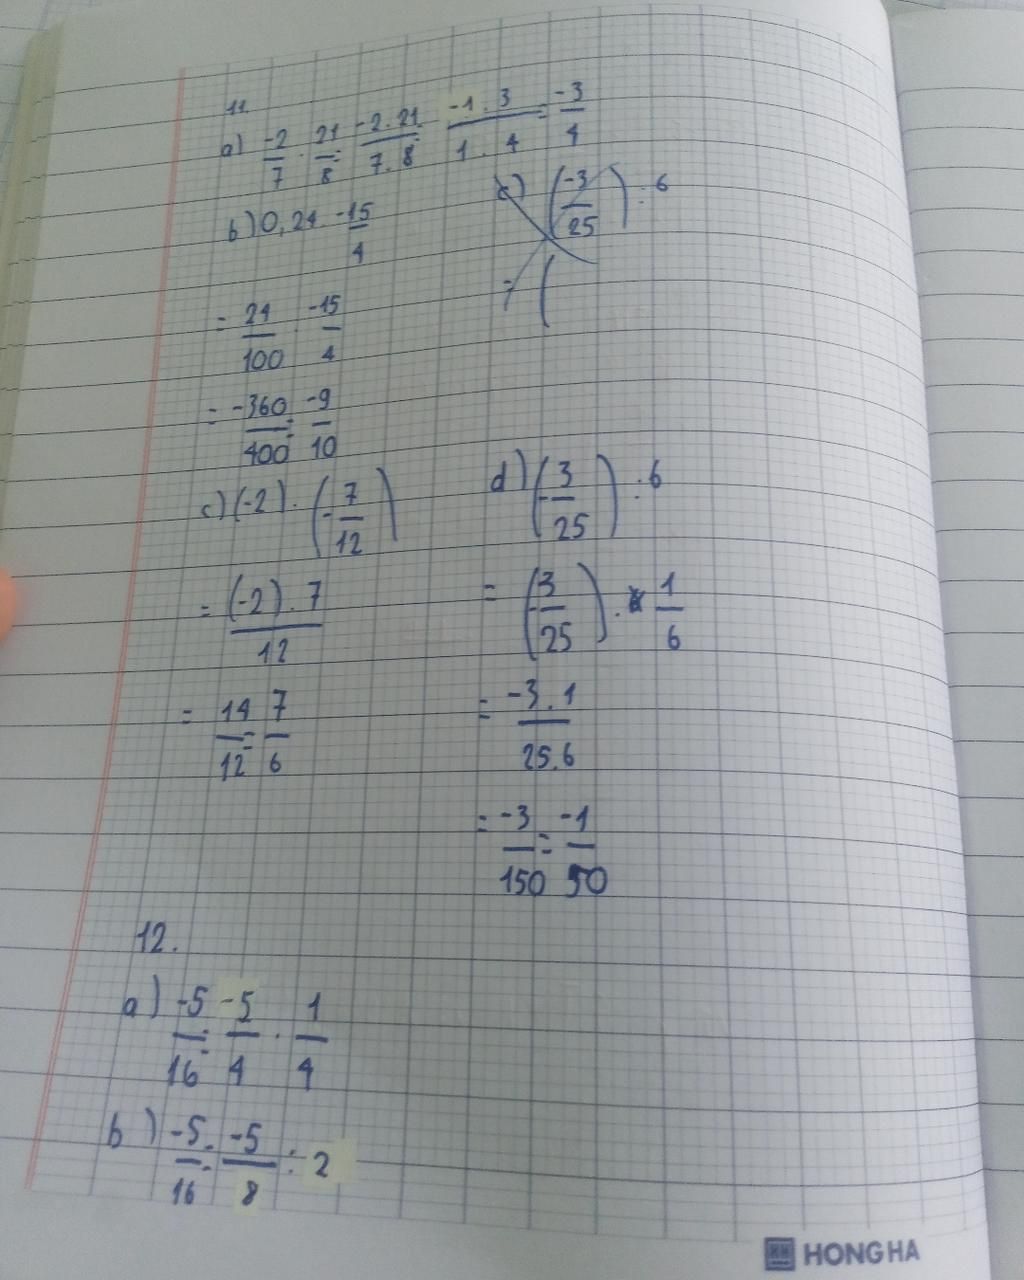 11.
a) -2/7 . 21/8 = -2.21/7.8 = -1.3/1.4 = -3/4
b) 0,24 . -15/4
= 24/100 . -15/4
= -360/400 = -9/10
c) (-3/25) : 6
= (
c) (-2) . (-7/12)
= (-2).7/12
= 14/12 = 7/6
d) (-3/25) : 6
= (-3/25) . 1/6
= -3.1/25.6
= -3/150 = -1/50
12.
a) -5/16 = -5/4 . 1/4
b) -5/16 = -5/8 : 2
HONG HA